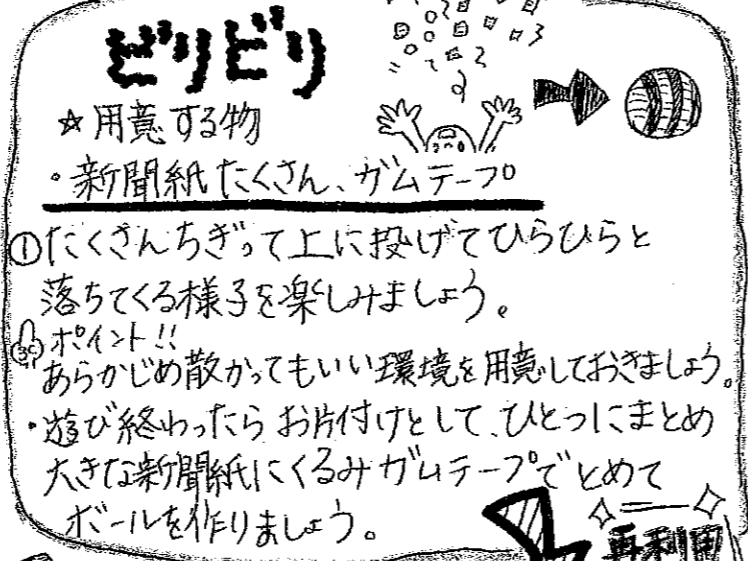 ビリビリ
☆用意する物
・新聞紙たくさん、ガムテープ
①たくさんちぎって上に投げてひらひらと
落ちてくる様子を楽しみましょう。
ポイント!!
あらかじめ散かってもいい環境を用意しておきましょう。
・遊び終わったらお片付けとして、ひとつにまとめ
大きな新聞紙にくるみガムテープでとめて
ボールを作りましょう。
再利用